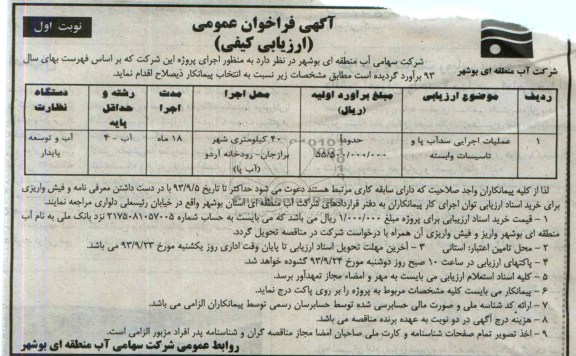 نوبت اول
آگهی فراخوان عمومی
(ارزیابی کیفی)
شرکت آب منطقه ای بوشهر
شرکت سهامی آب منطقه ای بوشهر در نظر دارد به منظور اجرای پروژه این شرکت که بر اساس فهرست بهای سال
۹۳ برآورد گردیده است مطابق مشخصات زیر نسبت به انتخاب پیمانکار ذیصلاح اقدام نماید.
ردیف موضوع ارزیابی مبلغ برآورد اولیه (ریال) محل اجرا مدت اجرا رشته و حداقل پایه دستگاه نظارت
۱ عملیات اجرایی سدآب پا و تاسیسات وابسته حدوداً ۵۵/۵۰۰/۰۰۰/۰۰۰ ۴۰ کیلومتری شهر برازجان- رودخانه آردو (آب پا) ۱۸ ماه آب - ۴ آب و توسعه پایدار
لذا از کلیه پیمانکاران واجد صلاحیت که دارای سابقه کاری مرتبط هستند دعوت می شود حداکثر تا تاریخ ۹۳/۹/۵ با در دست داشتن معرفی نامه و فیش واریزی
برای خرید اسناد ارزیابی توان اجرای کار پیمانکاران به دفتر قراردادهای شرکت آب منطقه ای استان بوشهر واقع در خیابان رئیسعلی دلواری مراجعه نمایند.
۱ - قیمت خرید اسناد ارزیبابی برای پروژه مبلغ ۱/۰۰۰/۰۰۰ ریال می باشد که می بایست به حساب شماره ۲۱۷۵۰۸۱۰۵۷۰۰۵ نزد بانک ملی به نام آب
منطقه ای بوشهر واریز و فیش واریزی آن همراه با درخواست شرکت در مناقصه تحویل گردد.
۲ - محل تامین اعتبار: استانی ۳ - آخرین مهلت تحویل اسناد ارزیابی تا پایان وقت اداری روز یکشنبه مورخ ۹۳/۹/۲۳ می باشد.
۴ - پاکتهای ارزیابی در ساعت ۱۰ صبح روز دوشنبه مورخ ۹۳/۹/۲۴ گشوده خواهد شد.
۵ - کلیه اسناد استعلام ارزیابی می بایست به مهر و امضاء مجاز تعهدآور برسد.
۶ - پیمانکار می بایست کلیه مشخصات مربوط به پروژه را بر روی پاکت درج نماید.
۷ - ارائه کد شناسه ملی و صورت مالی حسابرسی شده توسط حسابرسان رسمی توسط پیمانکاران الزامی می باشد.
۸ - هزینه درج آگهی در دو نوبت به عهده برنده مناقصه می باشد.
۹ - اخذ تصویر تمام صفحات شناسنامه و کارت ملی صاحبان امضا مجاز مناقصه گران و شناسنامه پدر افراد مزبور الزامی است.
روابط عمومی شرکت سهامی آب منطقه ای بوشهر